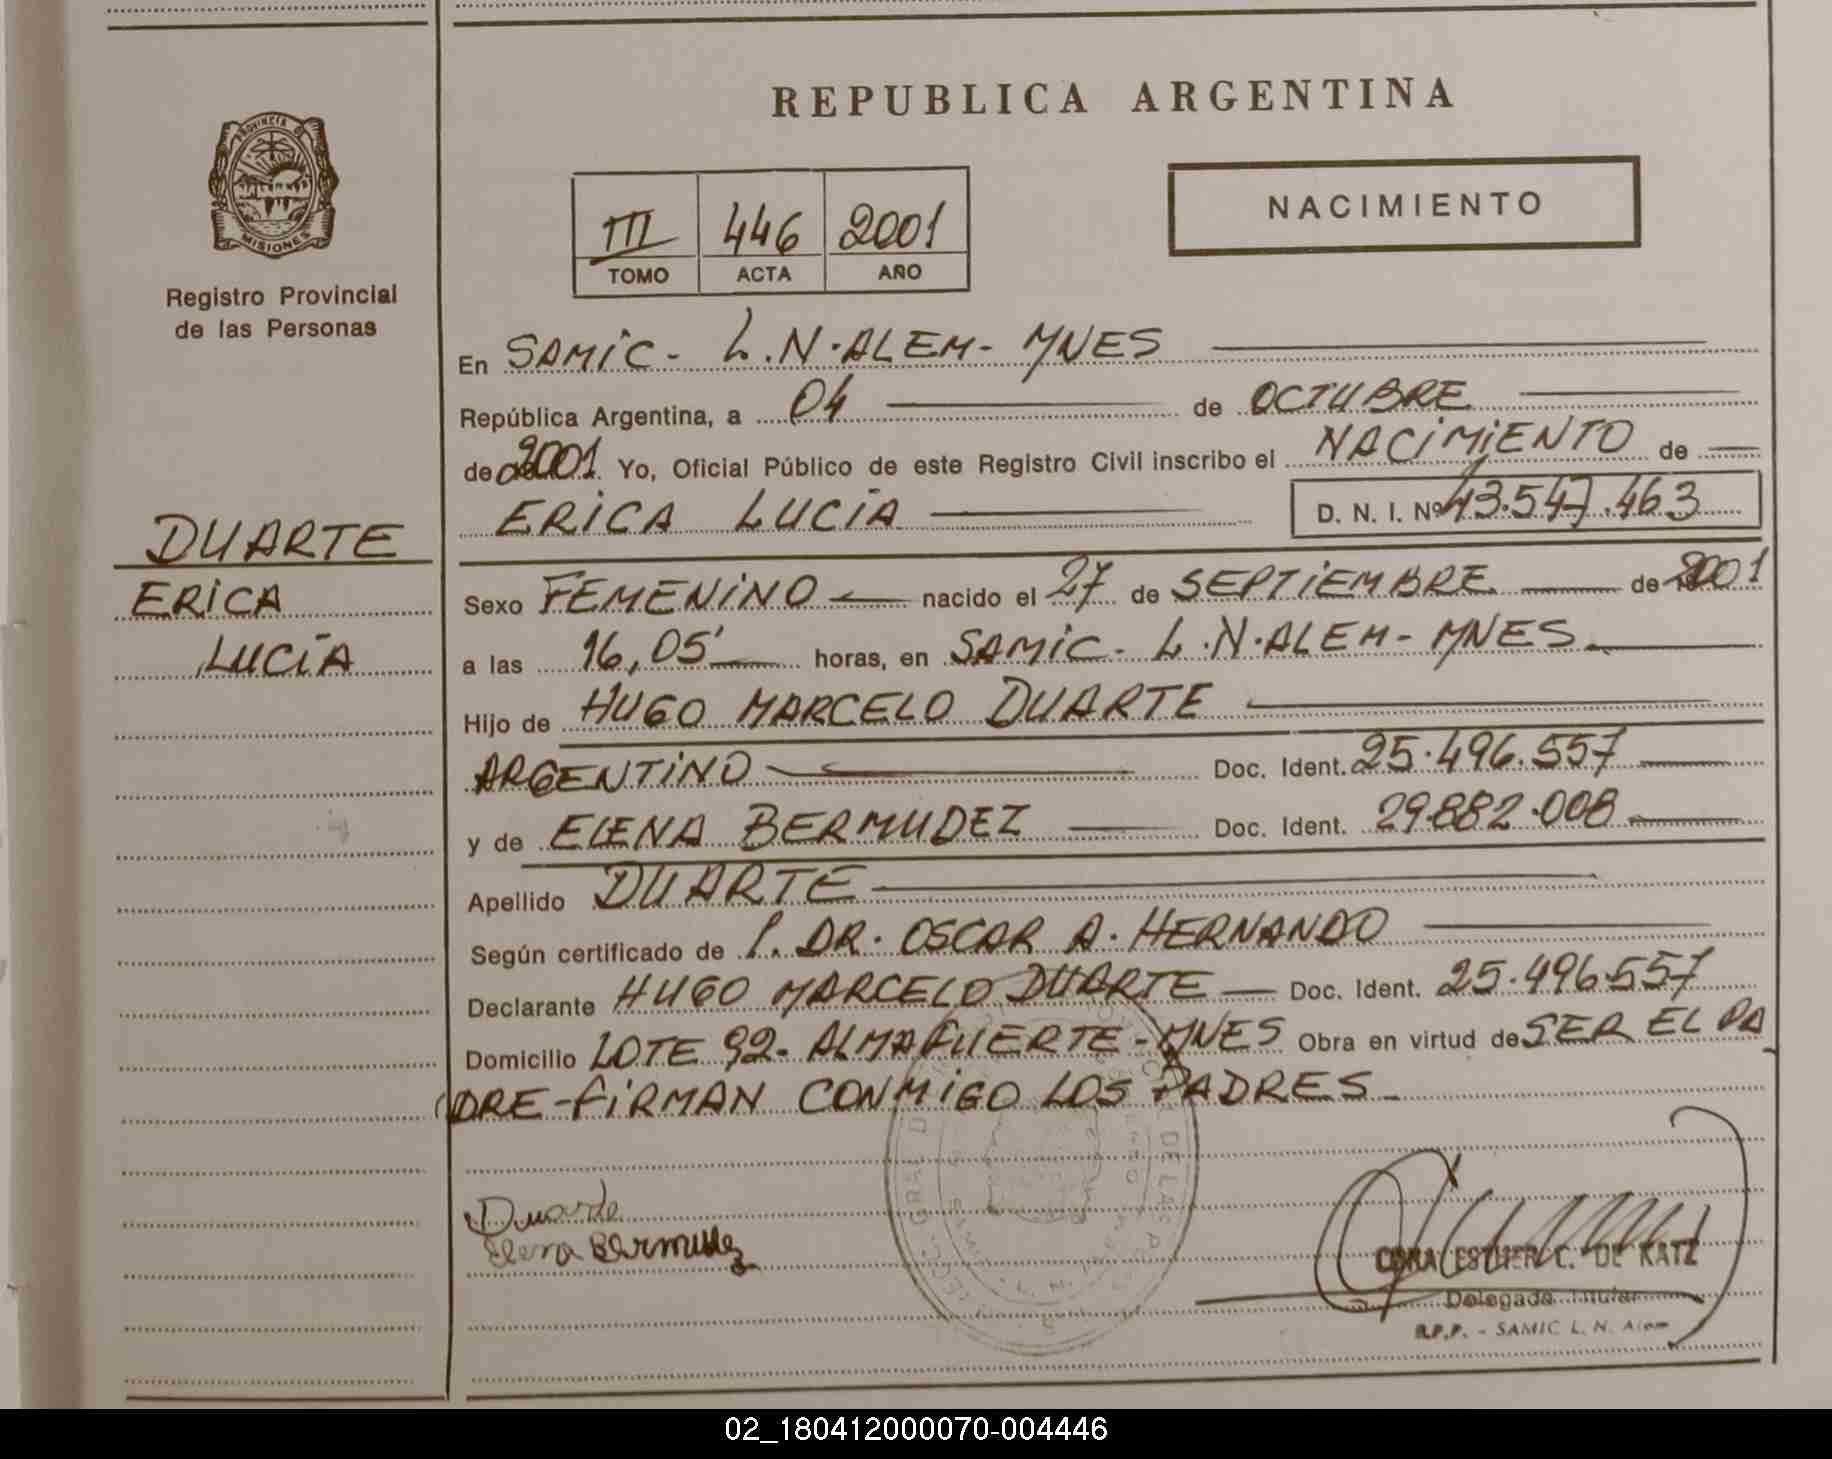 REPUBLICA ARGENTINA
PROVINCIA D
MISIONES
Registro Provincial
de las Personas
III 446 2001
TOMO ACTA AÑO
NACIMIENTO
En SAMIC - L.N.ALEM - MNES
República Argentina, a 04 de OCTUBRE
de 2001 Yo, Oficial Público de este Registro Civil inscribo el NACIMIENTO de
ERICA LUCÍA D. N. I. Nº 43.547.463
DUARTE
ERICA
LUCÍA
Sexo FEMENINO nacido el 27 de SEPTIEMBRE de 2001
a las 16,05' horas, en SAMIC - L.N.ALEM - MNES
Hijo de HUGO MARCELO DUARTE
ARGENTINO Doc. Ident. 25.496.557
y de ELENA BERMUDEZ Doc. Ident. 29.882.008
Apellido DUARTE
Según certificado de DR. OSCAR A. HERNANDO
Declarante HUGO MARCELO DUARTE Doc. Ident. 25.496.557
Domicilio LOTE 92 - ALMAFUERTE - MNES Obra en virtud de SER EL PA
DRE - FIRMAN CONMIGO LOS PADRES -
Duarte
Elena Bermudez
ESTHER C. DE KATZ
Delegada Titular
R.P.P. - SAMIC L. N. Alem
02_180412000070-004446